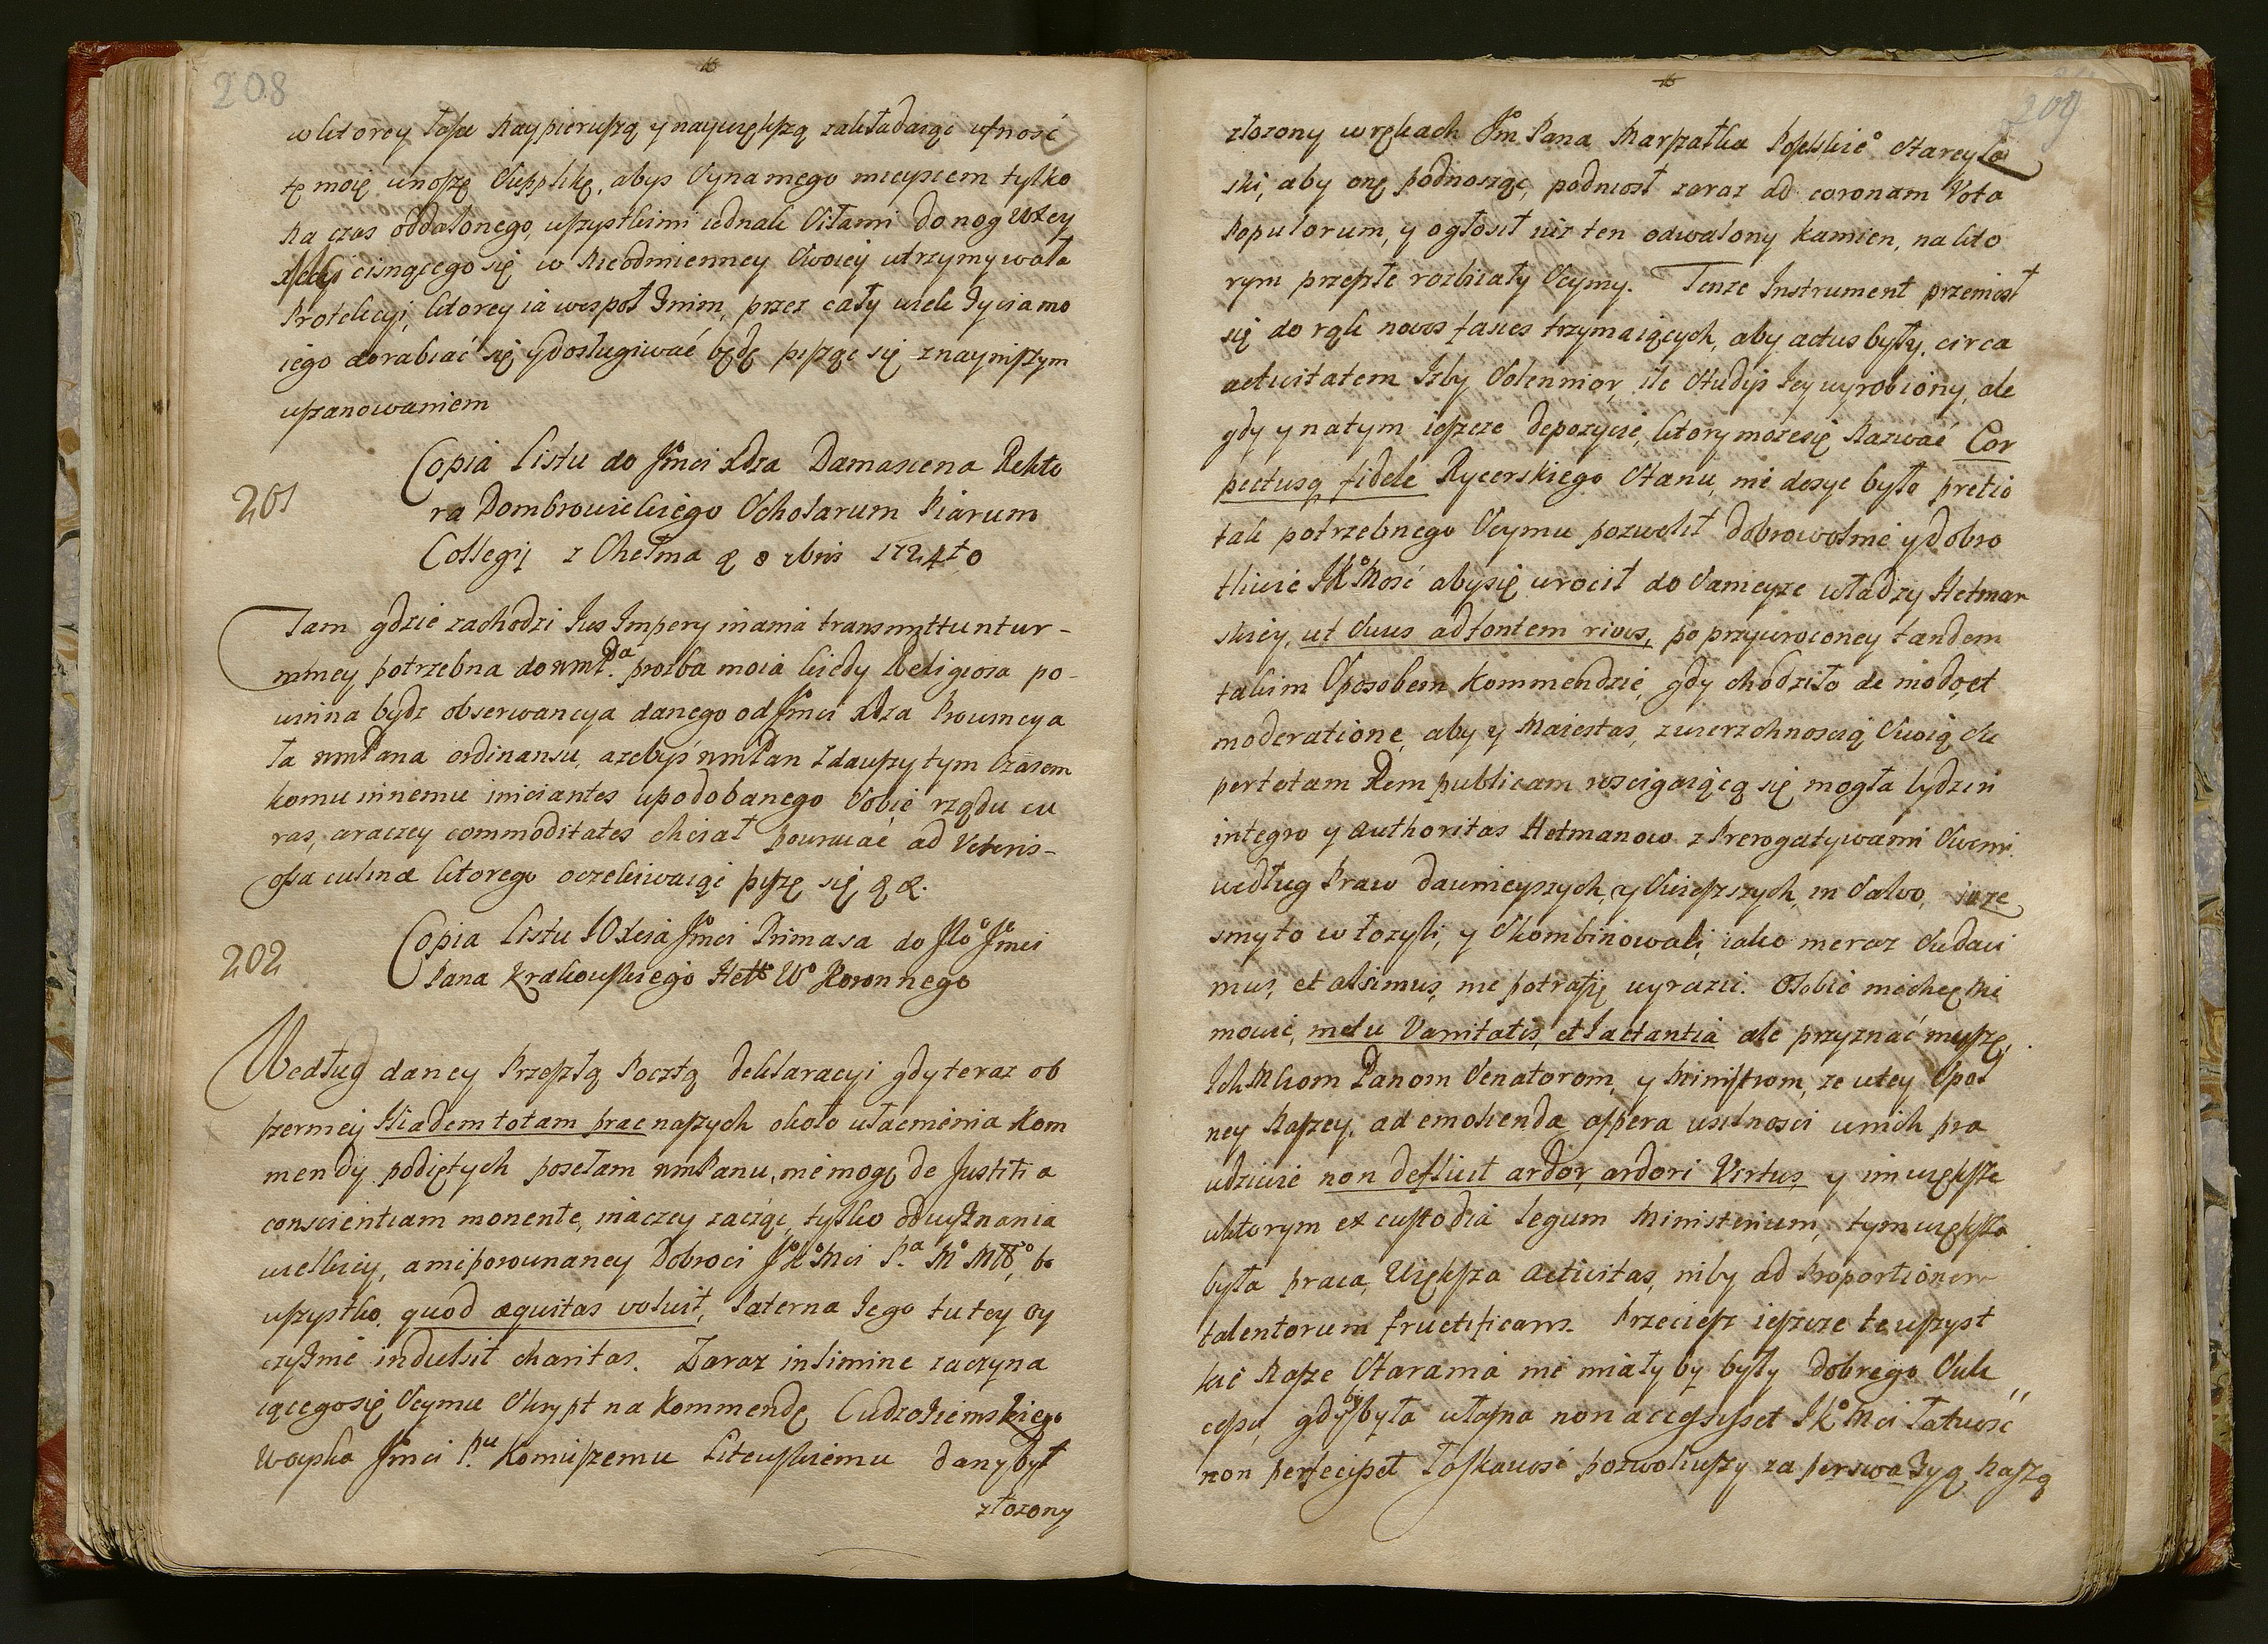 208
w ktorey łasce naypierwszą y naywiększą zakładaiąc ufność
tę moię wnoszę supplikę, abys syna mego mieyscem tylko
na czas oddalonego, wszystkimi iednak siłami do nog WXcy
cisnącego się w nieodmienney swoiey utrzymywała
Protekcyi, ktorey ia wespoł z nim, przez cały wiek życia mo
iego dorabiać się y dosługiwać będę pisząc się z nayniższym
uszanowaniem
201
Copia Listu do Jmci Xdza Damascena Rekto
ra Dombrowickiego Scholarum Piarum
Collegij z Chełma d 8 xbris 1724to
Tam gdzie zachodzi Ius Impery inania transmyttuntur
mniey potrzebna do wmPa. prozba moia kiedy Religiosa po
winna bydz obserwancya danego od Jmci Xdza Prowincya
ła wmPana ordinansu, azebyś wmPan zdawszy tym czasem
komu innemu iniciantes upodobanego sobie rządu cu
ras, araczey commoditates chciał powracać ad Veteris
ossa culinæ ktorego oczekiwaiąc piszę się &&.
202
Copia Listu JOXcia Jmci Primasa do JWo Jmci
Pana Krakowskiego Hetta Wo Koronnego
Według daney Przeszłą Pocztą deklaracyi gdy teraz ob
szerniey Iliadem totam prac naszych około ułacnienia Kom
mendy podiętych posełam wmPanu, nie mogę de Justitia
conscientiam monente, inaczey zacząć, tylko od wyznania
wielkiey, a nieporownaney Dobroci JKoMci Pa Mo Mło, bo
wszystko, quod æquitas voluit, Paterna Jego tutey oy
czyźnie indulsit charitas. Zaraz in limine zaczyna
iącego się Seymu Skrypt na Kommendę Cudzoziemskiego
Woyska Jmci Pu Komiszemu Litewskiemu dany był
złozony
209
złozony w rękach Jm Pana Marszałka Poselskiego starey la
ski, aby onę podnosząc, podniosł zaraz ad coronam Vota
Populorum, y ogłosił iuz ten odwalony kamien, na kto
rym przeszłe rozbiiały Seymy. Tenze Instrument przeniosł
się do rąk novos fasces trzymaiących, aby actus były, circa
activitatem Izby solennior, ile studijs Jey wyrobiony, ale
gdy y na tym ieszcze depozycie, ktory moze się nazwać Cor
pectusq fidele Rycerskiego Stanu, nie dosyc było pretio
tak potrzebnego Seymu pozwolił dobrowolnie y dobro
tliwie JKoMość aby się wrocił do dawnieysze władzy Hetman
skiey, ut suus ad fontem rivus, po przywroconey tandem
takim sposobem Kommendzie, gdy chodziło de modo, et
moderatione, aby y Maiestas, zwierzchnoscią swoią się
per totam Rem publicam rosciągaiącą się mogła bydz in
integro y authoritas Hetmanow z Prerogatywami swemi
według Praw dawnieyszych, y swieższych, in salvo, iuze
smy to włozyli, y skombinowali, iako nieraz sudavi
mus, et alsimus, nie potrafię wyrazić. O sobie niechcę nic
mowić, metu Vanitatis, et Iactantia ale przyznać muszę,
IchMciom Panom Senatorom, y Ministrom, ze w tey spol
ney naszey, ad emolienda aspera usilnosci w nich pra
wdziwie non defficit ardor, ardori Virtus, y im większe
w ktorym et custodia legum Ministerium, tym większa
była praca, Większa Activitas, niby ad Proportionem
talentorum fructificans. Przeciesz ieszcze te wszyst
kie nasze starania nie miały by były dobrego suk
cessu, gdyby była własna non accessisset JKoMci łatwość
non perfecisset łaskawość pozwoliwszy za perswazyą naszą